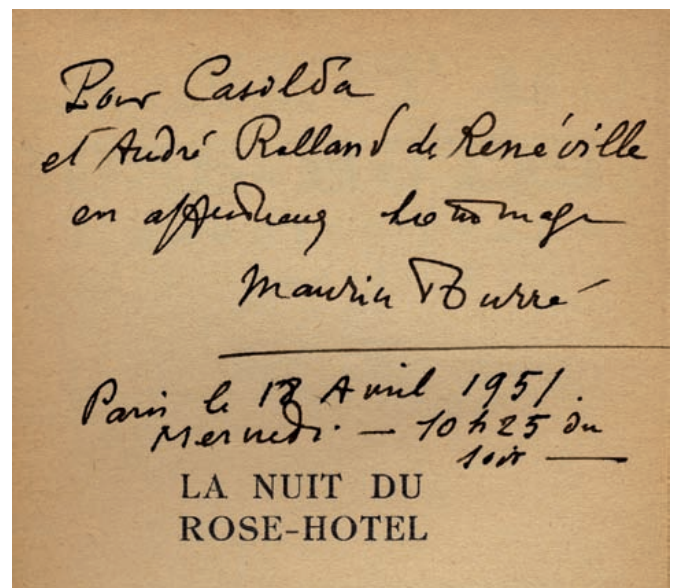 Pour Casilda
et André Rolland de Renéville
en affectueux hommage
Maurice Fourré
Paris le 18 Avril 1951.
Mercredi. — 10 h 25 du
soir —
LA NUIT DU
ROSE-HOTEL